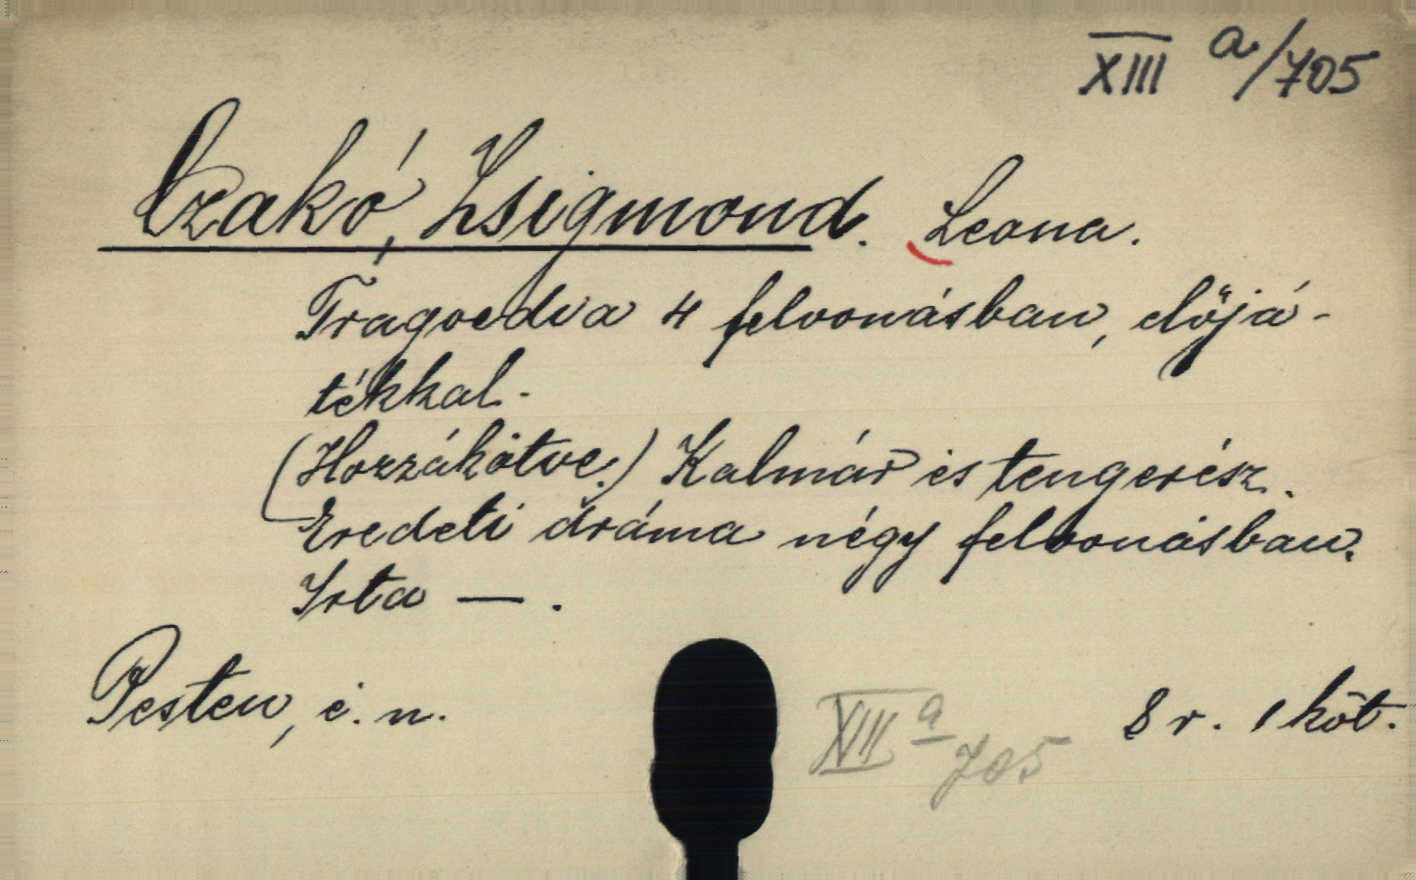 XIII a/705
Czakó, Zsigmond. Leona.
Tragoedia 4 felvonásban, előjá-
tékkal.
(Hozzákötve.) Kalmár és tengerész.
Eredeti dráma négy felvonásban.
Irta — .
Pesten, é. n.
8 r. 1 köt.
XIII a
705